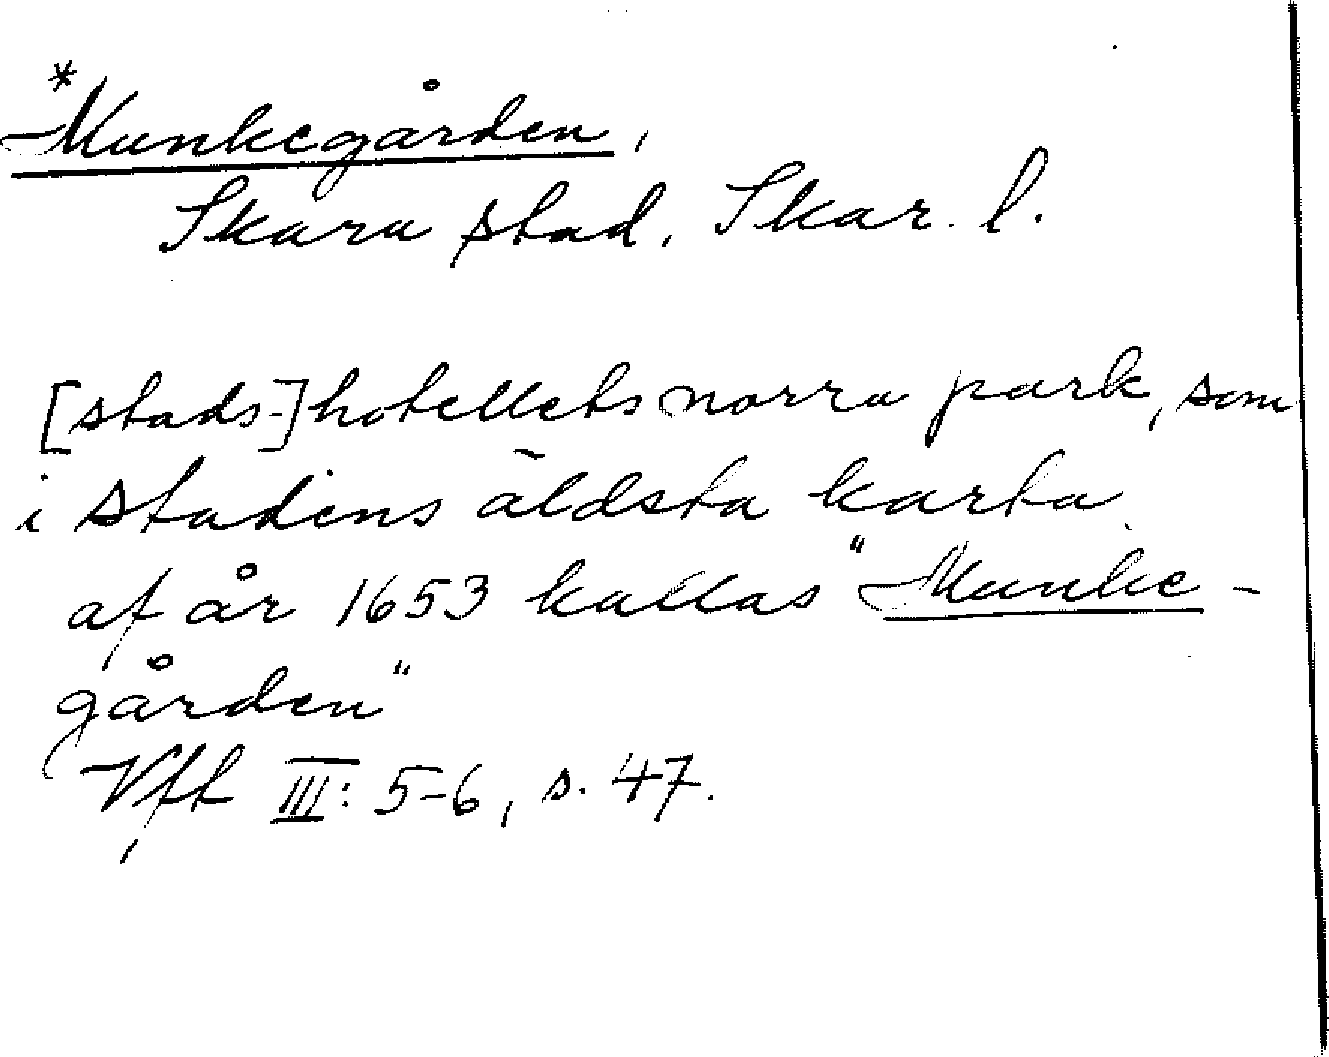 *Munkegården,
Skara stad, Skar. l.
[stads-]hotellets norra park, som
i stadens äldsta karta
af år 1653 kallas "Munke-
gården"
Vft III: 5-6, s. 47.